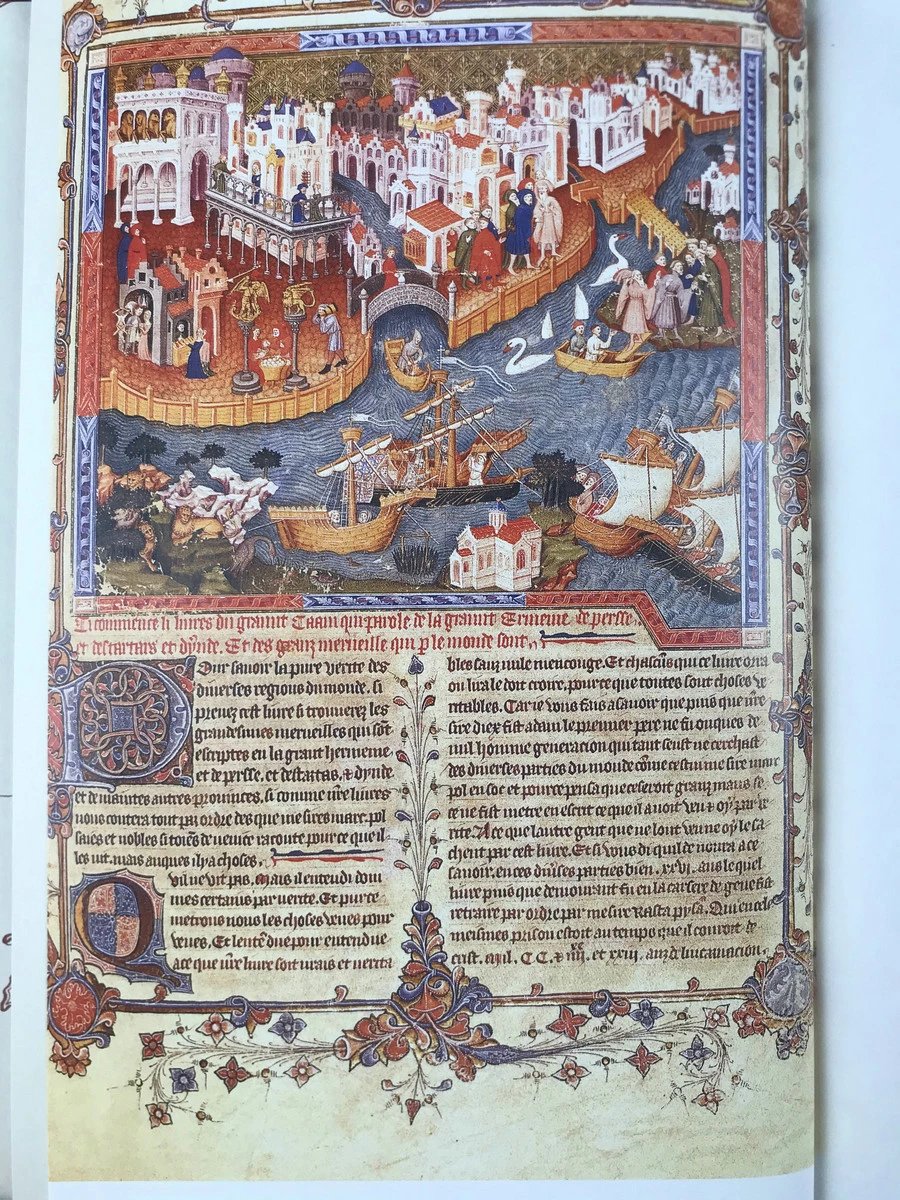 Ci commence li livres du graunt Caam qui parole de la graunt Ermenie de persse.
et des tartars et dynde. Et des granz merveille qui p le monde sont.
Pour savoir la pure verite des
diverses regions du monde. si
prenez cest livre si trouverez les
grandesimes merveilles qui sont
escriptes en la grant hermenie
et de persse. et des tartas. & dynde
et de maintes autres provinces. si comme nre livres
nous contera tout par ordre des que me sires marc pol
saies et nobles citoiens de venice raconte pour ce que il
les vit. mais auques il y a choses.
Quil ne vit pas. Mais il entendi dom
mes certains par verite. Et pur ce
metrons nous les choses veues pour
veues. Et lentendue pour entendue
a ce que nre livre soit vrais et verita
bles sanz nule mencouge. Et chascuns qui ce livre orra
ou lira le doit croire. pour ce que toutes sont choses ve
ritables. Car ie vous fais a savoir que puis que nre
sire diex fist adam le premier pere ne fu onques de
nul homme generacion qui tant seust ne cerchast
des diverses parties du monde come cestui me sire marc
pol en soc et pour ce pensa que ce seroit granz maus se
ce ne fist metre en escrit ce que il avoit veu & oy par ve
rite. A ce que lautre gent que ne lont veu ne oy le sa
chent par cest livre. Et si vous di quil demoura a ce
savoir. en ces diverses parties bien. xxvi. ans le quel
livre puis que demourant fu en la carsere de gene fist
retraire par ordre par me sire Rasta pysan. Qui en cele
meismes prison estoit au temps que il couroit de
crist. mil. CC. & iiii. xx et xviii. anz de lincarnacion.